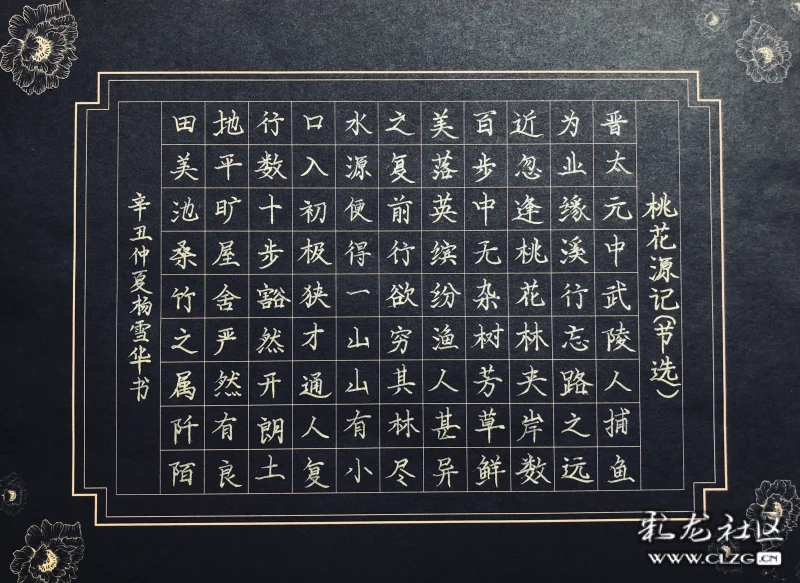 桃花源记(节选)
晋太元中武陵人捕鱼
为业缘溪行忘路之远
近忽逢桃花林夹岸数
百步中无杂树芳草鲜
美落英缤纷渔人甚异
之复前行欲穷其林尽
水源便得一山山有小
口入初极狭才通人复
行数十步豁然开朗土
地平旷屋舍严然有良
田美池桑竹之属阡陌
辛丑仲夏杨雪华书
彩龙社区
www.CLZG.CN